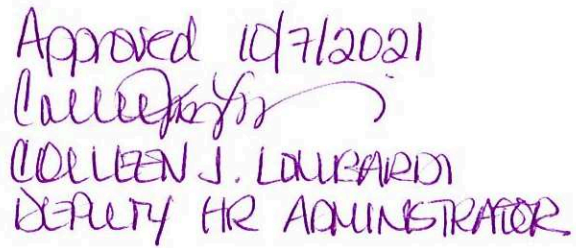 Approved 10/7/2021
COLLEEN J. LOMBARDI
DEPUTY HR ADMINISTRATOR